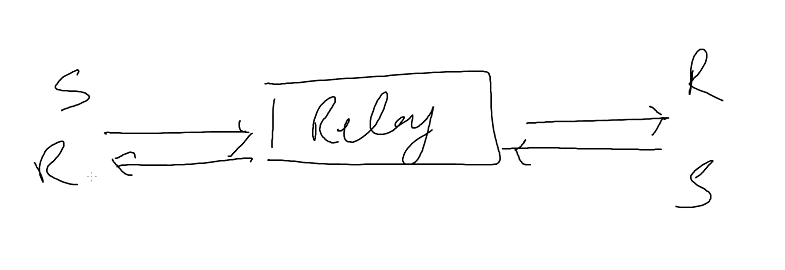 S R
Relay
R S